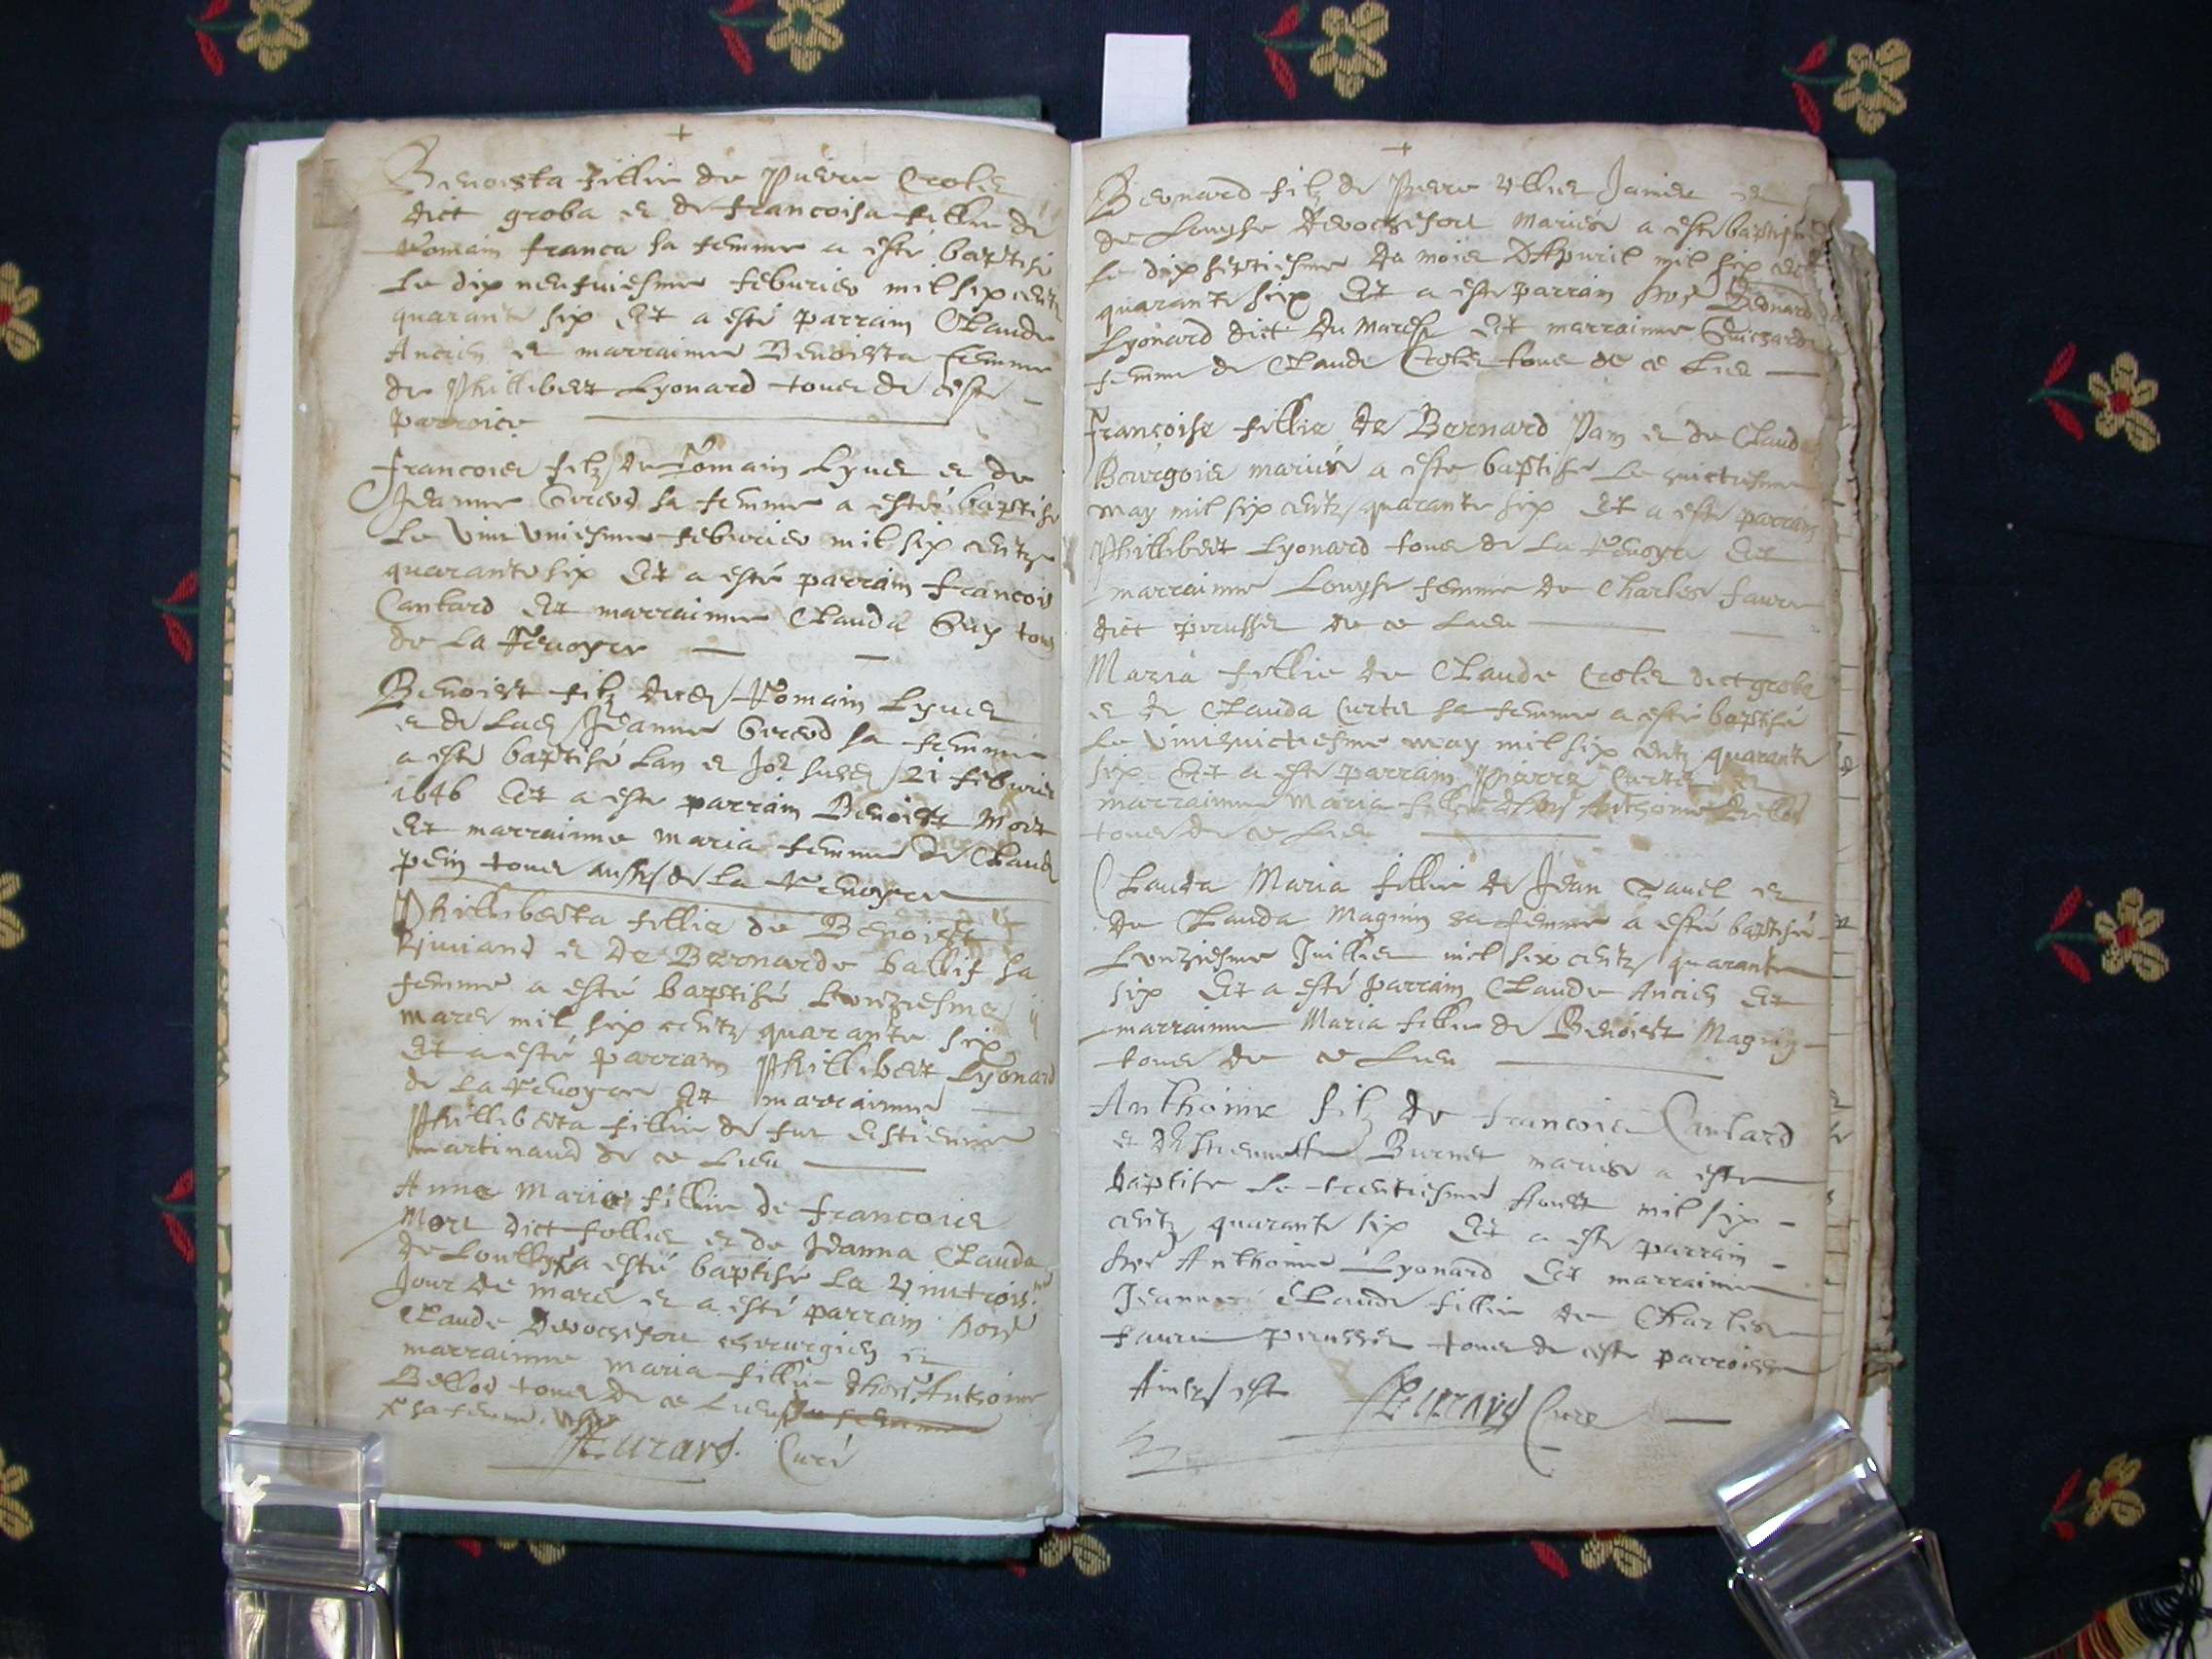 Benoista fillie de Pierre Crolet
dict groba et de francoisa fillie de
Romain franca sa femme a esté baptisé
Le dix neufuiesme feburier mil six centz
quarante six Et a esté parrain Claude
Ancien et marraine Benoista femme
de Phillibert Lyonard tous de ceste
parroice
francois filz de Romain Lyuet et de
Jeanne sa femme a esté baptisé
Le vint vniesme feburier mil six centz
quarante six Et a esté parrain francois
Cantard Et marrainne Clauda Guy tous
de La Reuoyre
Benoist filz Romain Lyuet
et de Jeanne sa femme
a esté baptisé Lan et Jor 21 feburier
1646 Et a este parrain Benoist Mort
Et marrainne maria femme de Claude
pein tous aussy de La Reuoyre
Philliberta fillie de Benoist
et de Bernarde ballif sa
femme a esté baptisé Lonziesme
mars mil six centz quarante six
Et a esté parrain Phillibert Lyonard
de La Reuoyre Et marrainne
Philliberta fillie de fut Estienne
martinand de ce Lieu
Anne Maria fillie de francois
Mort dict follier et de Jeanna Clauda
a esté baptisé La vint trois.me
Jour de mars et a esté parrain hon.e
Claude Deuochisort chirurgien et
marrainne maria fillie Anthoine
Bellod tous de ce Lieu
x sa femme
Cuez
Bernard filz de Pierre Vllier Janier et
de Louyse Deuochisort mariés a esté baptisé
Le dix septiesme du mois D'Apuril mil six centz
quarante six Et a este parrain hon.e Bernard
Lyonard dict du March Et marrainne Guicharde
femme de Claude Crolet tous de ce Lieu
Françoise fillie de Bernard Pain et de Clauda
Bourgois mariés a este baptise Le huictiesme
may mil six centz quarante six Et a este parrain
Phillibert Lyonard tous de La Reuoyre Et
marrainne Louyse femme de Charles faure
dict perussel de ce Lieu
Maria fillie de Claude Crolet dict groba
et de Clauda Curtet sa femme a esté baptisé
Le vint huictiesme may mil six centz quarante
six Et a este parrain Pierre Curtet et
marrainne maria fillie Anthoine Bellod
tous de ce Lieu
Clauda Maria fillie de Jean Tauel et
de Clauda Magnin sa femme a esté baptisé
Lonziesme Juillier mil six centz quarante
six Et a esté parrain Claude Ancien Et
marrainne Maria fillie de Benoist Magnin
tous de ce Lieu
Anthoine filz de francois Cantard
et d'Estiennette Burnet mariés a este
baptise Le trentiesme Aoust mil six
centz quarante six Et a este parrain
hon.e Anthoine Lyonard Et marrainne
Jeanne Claude fillie de Charles
faure perussel tous de ceste parroisse
Ainsy est Curé